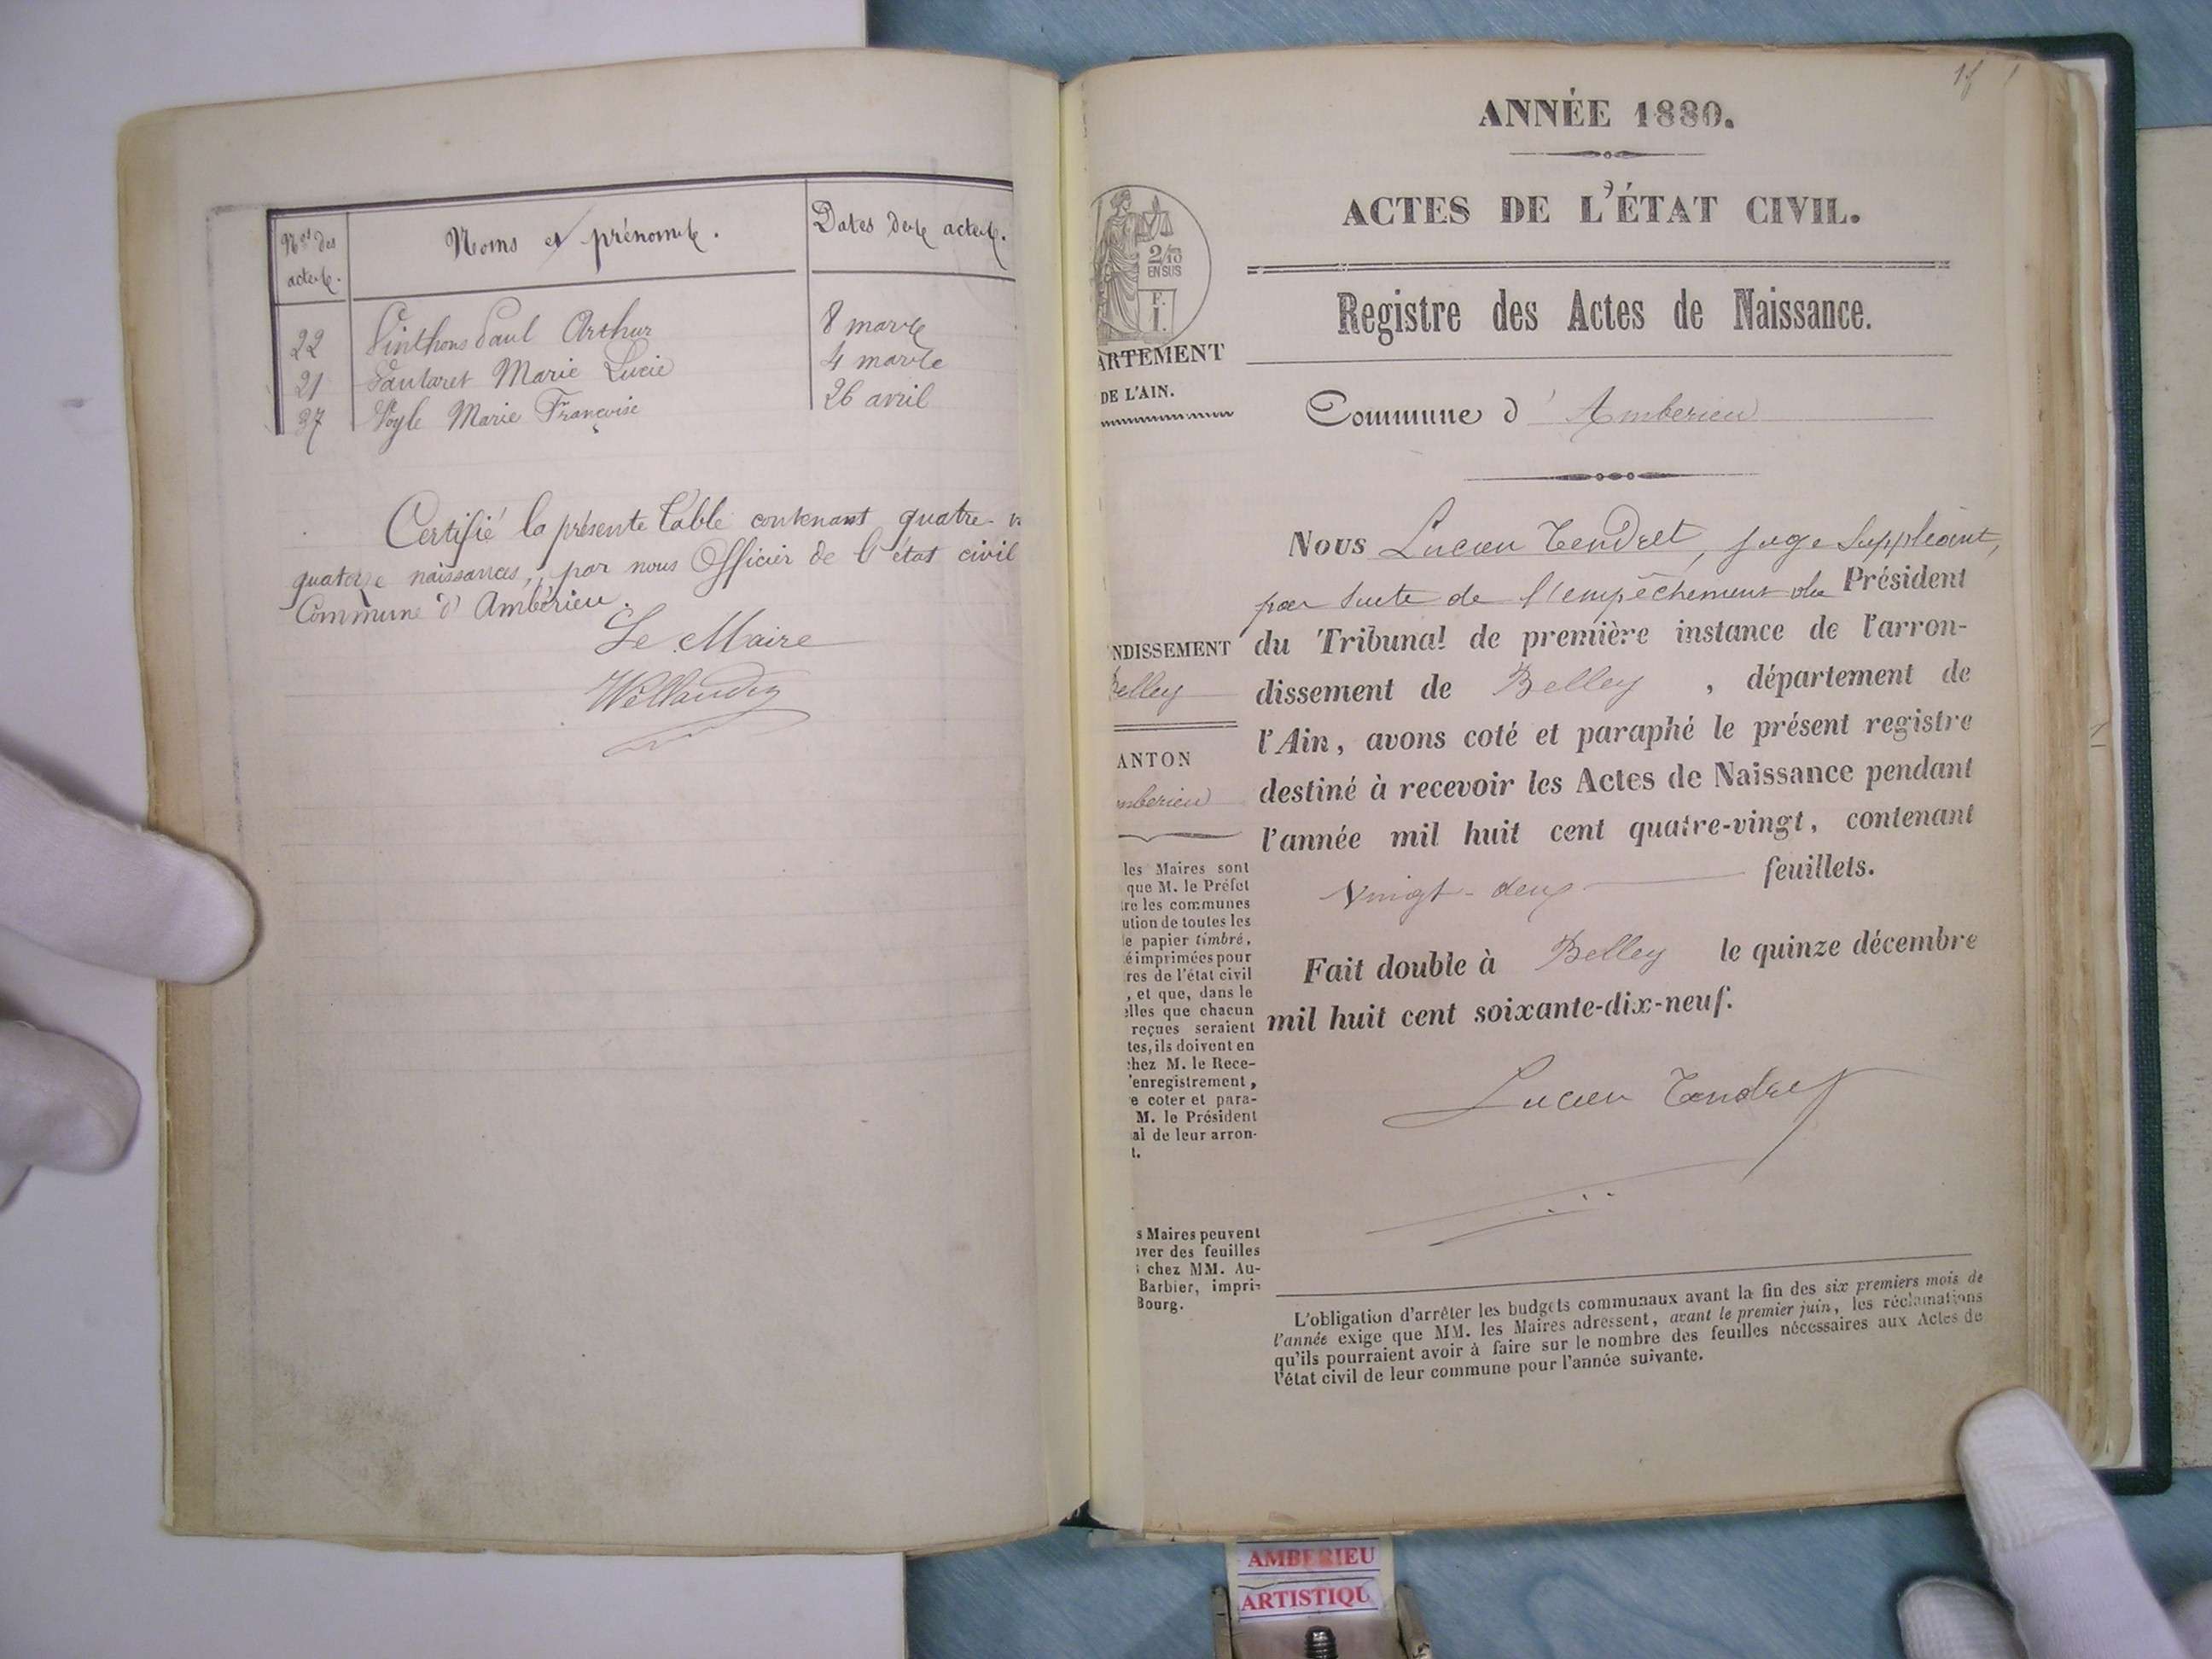 Nos des
actes.
Noms et prénoms.
Dates des actes.
22 Paul Arthur 8 mars
21 Marie Lucie 4 mars
37 Marie Françoise 26 avril
Certifié la présente Table contenant quatre-v
quatorze naissances, par nous Officier de l'état civil
Commune d'Ambérieu.
Le Maire
1f 1
ANNÉE 1880.
ACTES DE L'ÉTAT CIVIL.
2/10
EN SUS
F.
I.
Registre des Actes de Naissance.
ARTEMENT
DE L'AIN.
Commune d'Amberieu
Nous Lucien Tendret, juge Suppléant,
par suite de l'empêchement du Président
du Tribunal de première instance de l'arron-
NDISSEMENT
Belley
dissement de Belley, département de
l'Ain, avons coté et paraphé le présent registre
ANTON
mberieu
destiné à recevoir les Actes de Naissance pendant
l'année mil huit cent quatre-vingt, contenant
Vingt-deux feuillets.
Fait double à Belley le quinze décembre
mil huit cent soixante-dix-neuf.
Lucien Tendret
les Maires sont
que M. le Préfet
tre les communes
ution de toutes les
le papier timbré,
é imprimées pour
res de l'état civil
, et que, dans le
elles que chacun
reçues seraient
tes, ils doivent en
chez M. le Rece-
'enregistrement,
e coter et para-
M. le Président
al de leur arron-
t.
s Maires peuvent
uver des feuilles
s chez MM. Au-
Barbier, impri-
Bourg.
L'obligation d'arrêter les budgets communaux avant la fin des six premiers mois de
l'année exige que MM. les Maires adressent, avant le premier juin, les réclamations
qu'ils pourraient avoir à faire sur le nombre des feuilles nécessaires aux Actes de
l'état civil de leur commune pour l'année suivante.
AMBERIEU
ARTISTIQU